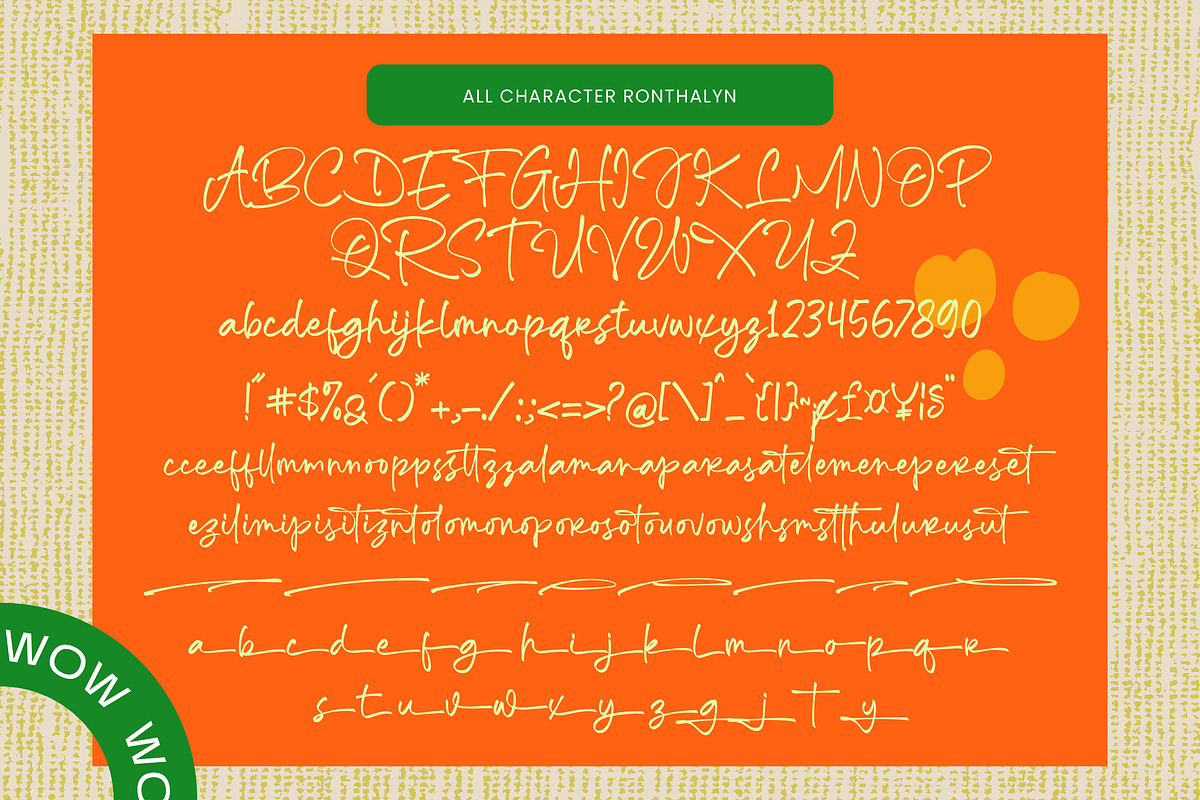 ALL CHARACTER RONTHALYN
ABCDEFGHIJKLMNOP
QRSTUVWXYZ
abcdefghijklmnopqrstuvwxyz1234567890
!"#$%&´()*+,-./:;<=>?@[\]^_`{|}~¡¢£¤¥¦§¨
cceeffllmmnnooppssttzzalamanaparasatelemenepereset
ezilimipisitizntolomonoporosotouovowshsmstthulurusut
a b c d e f g h i j k l m n o p q r
s t u v w x y z g j T y
WOW WO